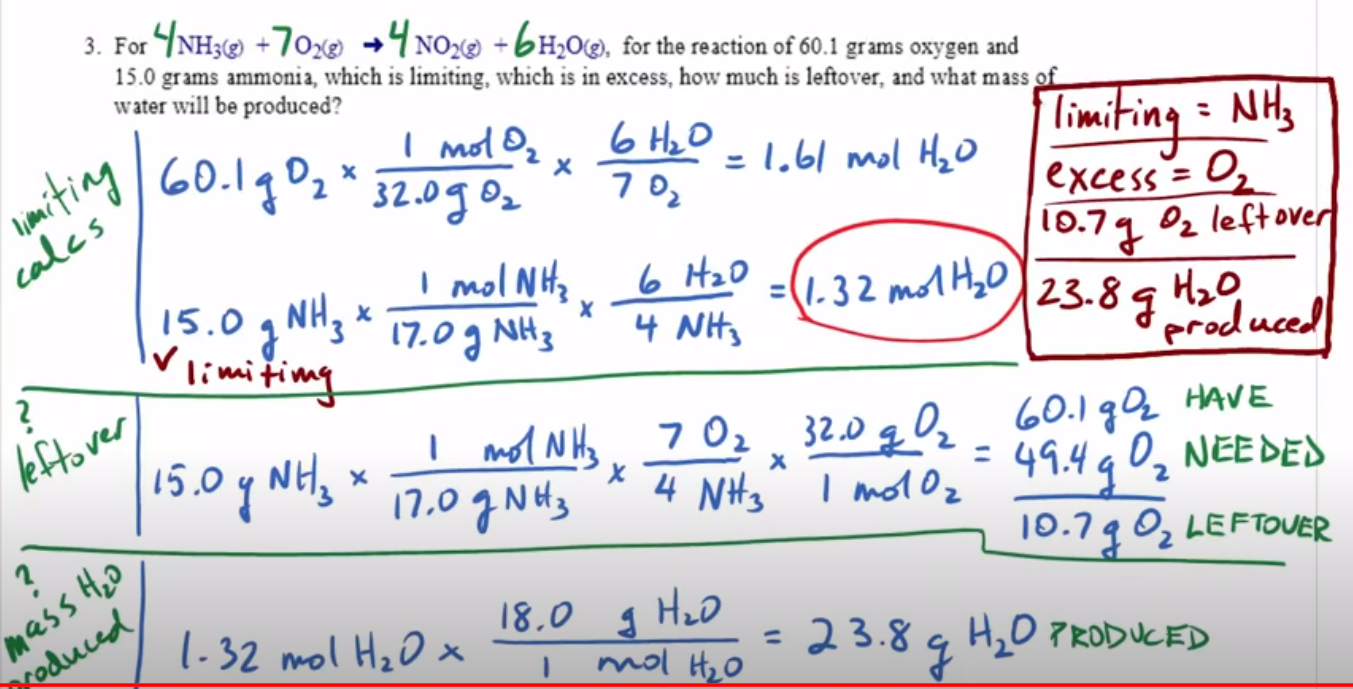 3. For 4 NH₃(g) + 7 O₂(g) → 4 NO₂(g) + 6 H₂O(g), for the reaction of 60.1 grams oxygen and
15.0 grams ammonia, which is limiting, which is in excess, how much is leftover, and what mass of
water will be produced?
limiting calcs
60.1 g O₂ × 1 mol O₂ / 32.0 g O₂ × 6 H₂O / 7 O₂ = 1.61 mol H₂O
15.0 g NH₃ × 1 mol NH₃ / 17.0 g NH₃ × 6 H₂O / 4 NH₃ = 1.32 mol H₂O
✓ limiting
limiting = NH₃
excess = O₂
10.7 g O₂ leftover
23.8 g H₂O
produced
?
leftover
15.0 g NH₃ × 1 mol NH₃ / 17.0 g NH₃ × 7 O₂ / 4 NH₃ × 32.0 g O₂ / 1 mol O₂ =
60.1 g O₂ HAVE
49.4 g O₂ NEEDED
10.7 g O₂ LEFTOVER
?
mass H₂O
produced
1.32 mol H₂O × 18.0 g H₂O / 1 mol H₂O = 23.8 g H₂O PRODUCED